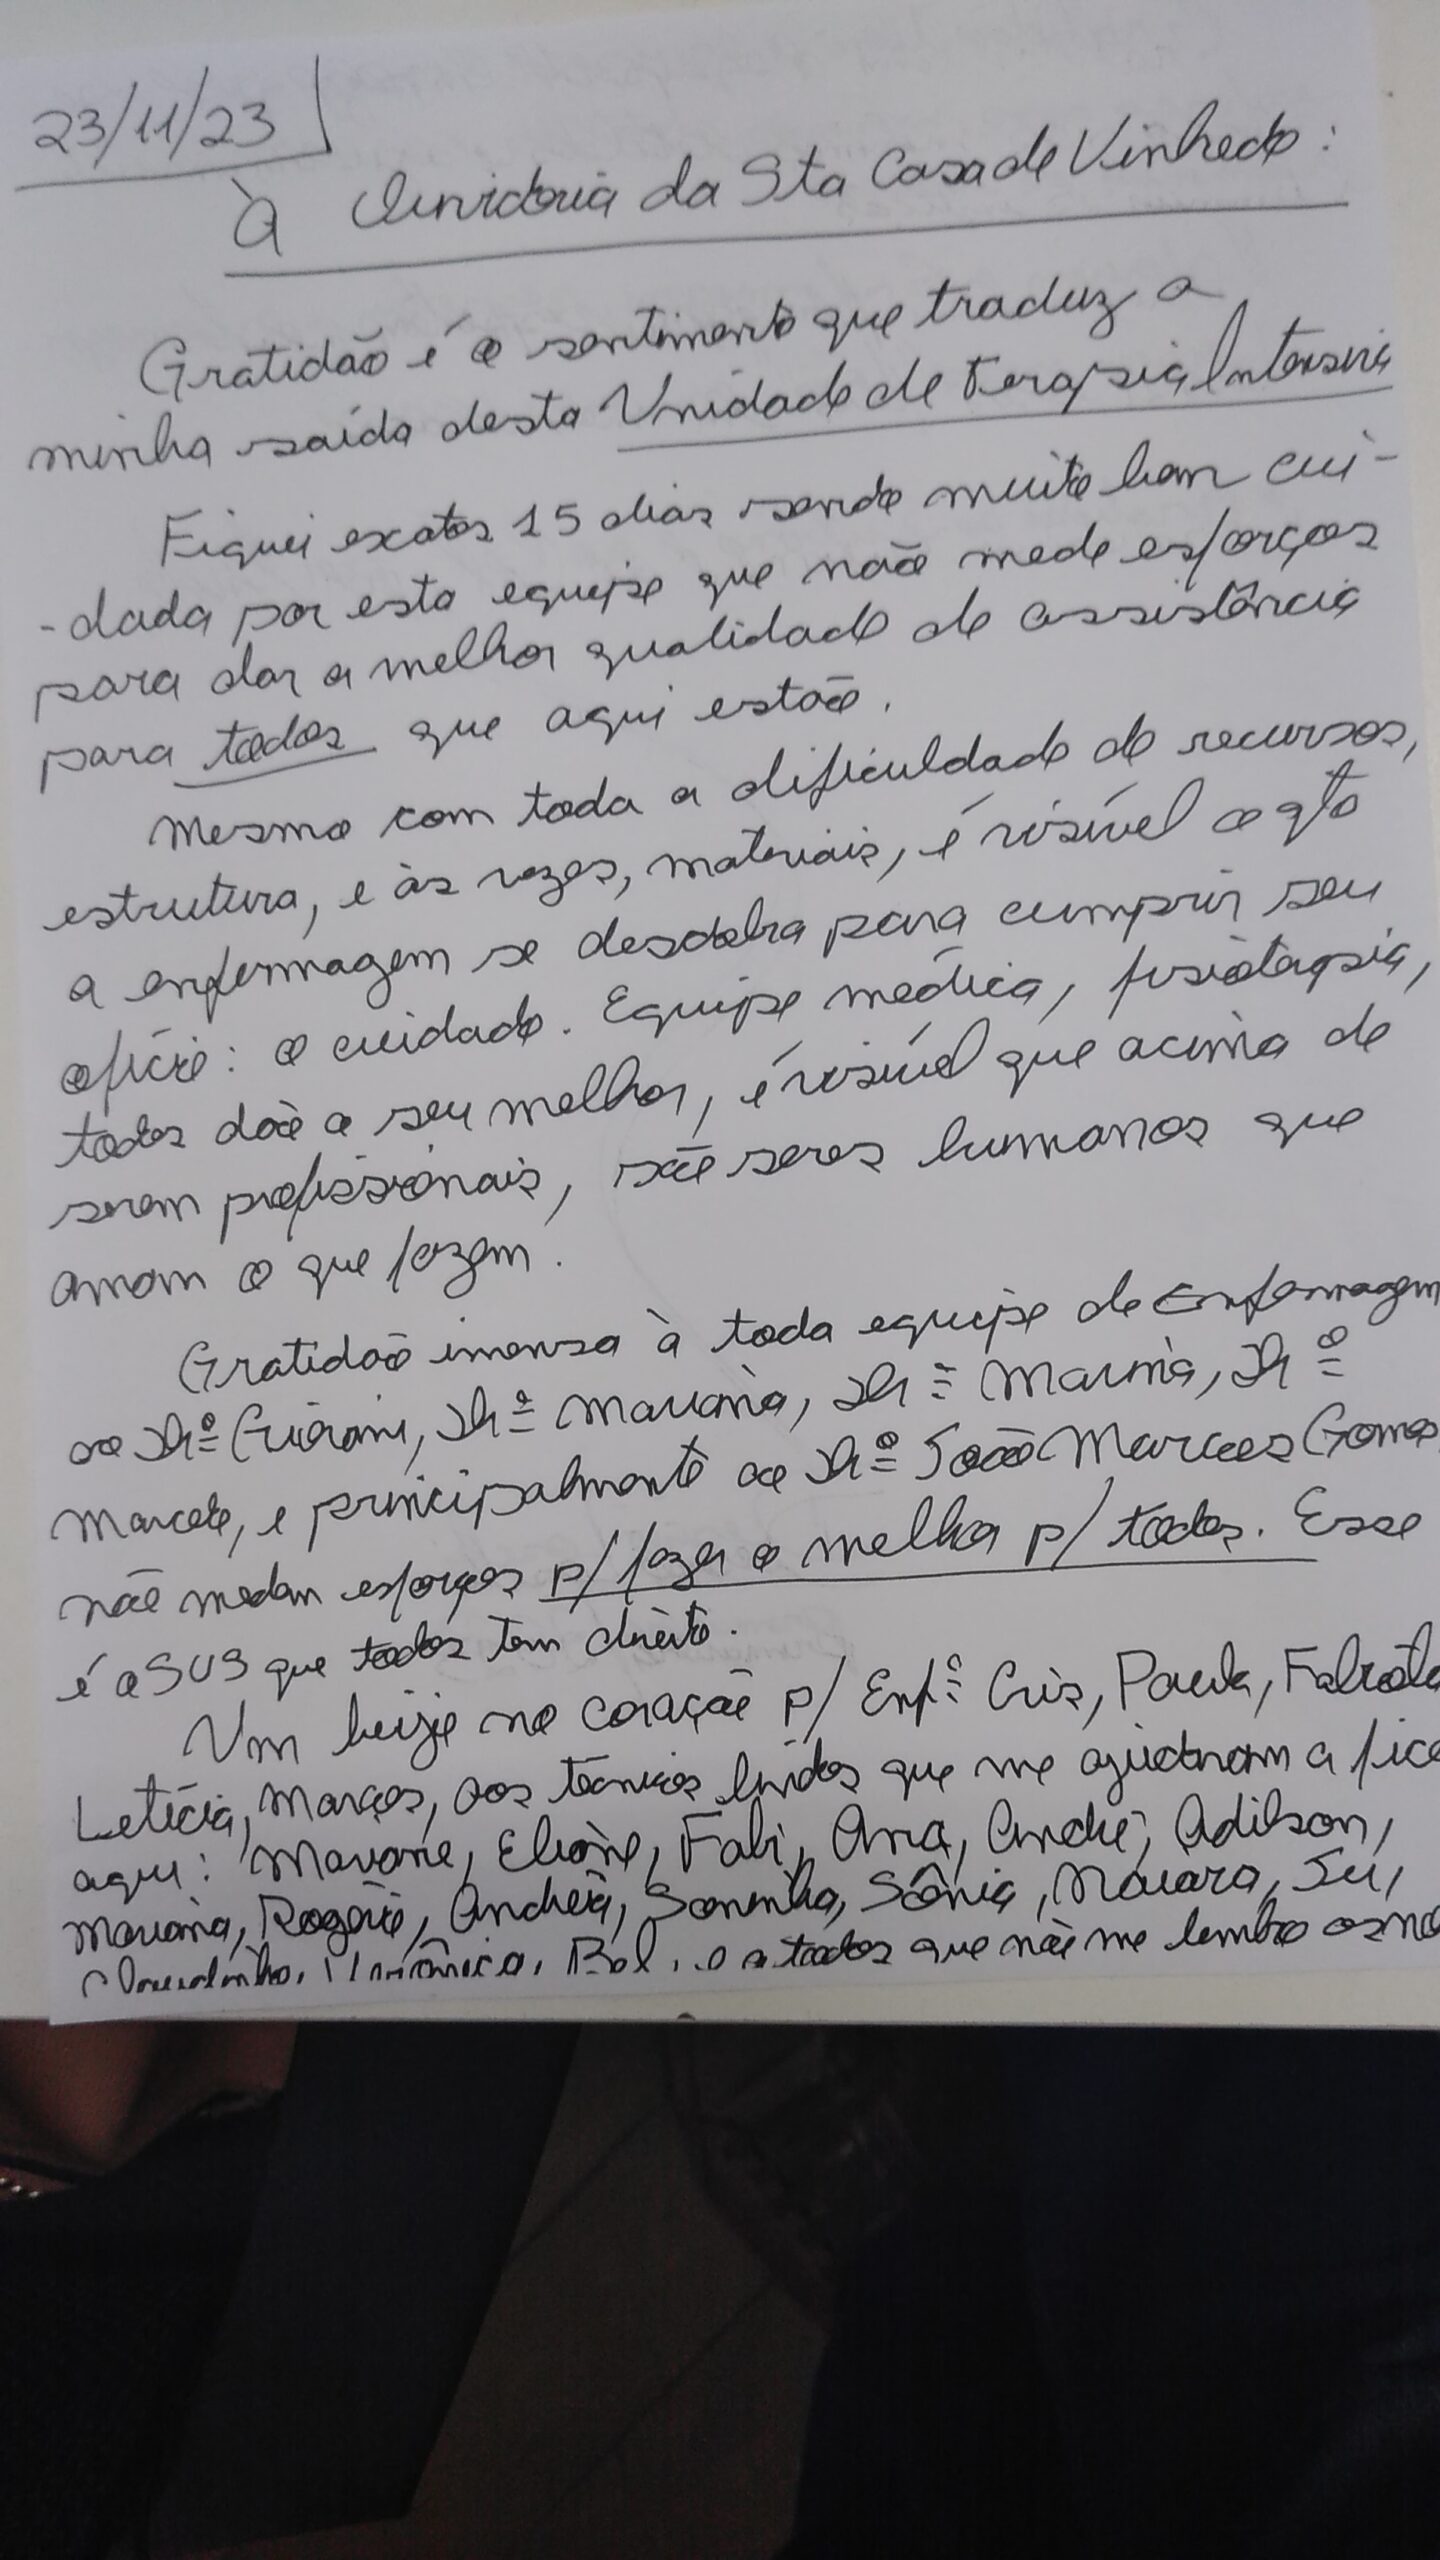 23/11/23
À Ouvidoria da Sta Casa de Vinhedo:
Gratidão é o sentimento que traduz a
minha saída desta Unidade de Terapia Intensiva
Fiquei exatos 15 dias sendo muito bem cui-
-dada por esta equipe que não mede esforços
para dar a melhor qualidade de assistência
para todos que aqui estão.
Mesmo com toda a dificuldade de recursos,
estrutura, e às vezes, materiais, é visível o qto
a enfermagem se desdobra para cumprir seu
ofício: o cuidado. Equipe médica, fisioterapia,
todos dão o seu melhor, é visível que acima de
serem profissionais, são seres humanos que
amam o que fazem.
Gratidão imensa à toda equipe de Enfermagem
ao Drº Mariana, Drª Marina, Drº
Marcelo, e principalmente ao Drº João Marcos Gomes,
não medem esforços p/ fazer o melhor p/ todos. Esse
é o SUS que todos tem direito.
Um beijo no coração p/ Enfª Cris, Paula,
Letícia, Marcos, aos técnicos lindos que me ajudaram a
aqui: Mavone, Eliane, Fabi, Ana, André, Adilson,
Mariana, Rogério, Andréia, Soninha, Sônia, Naiara, Ju,
Claudinho, Bel, e a todos que não me lembro